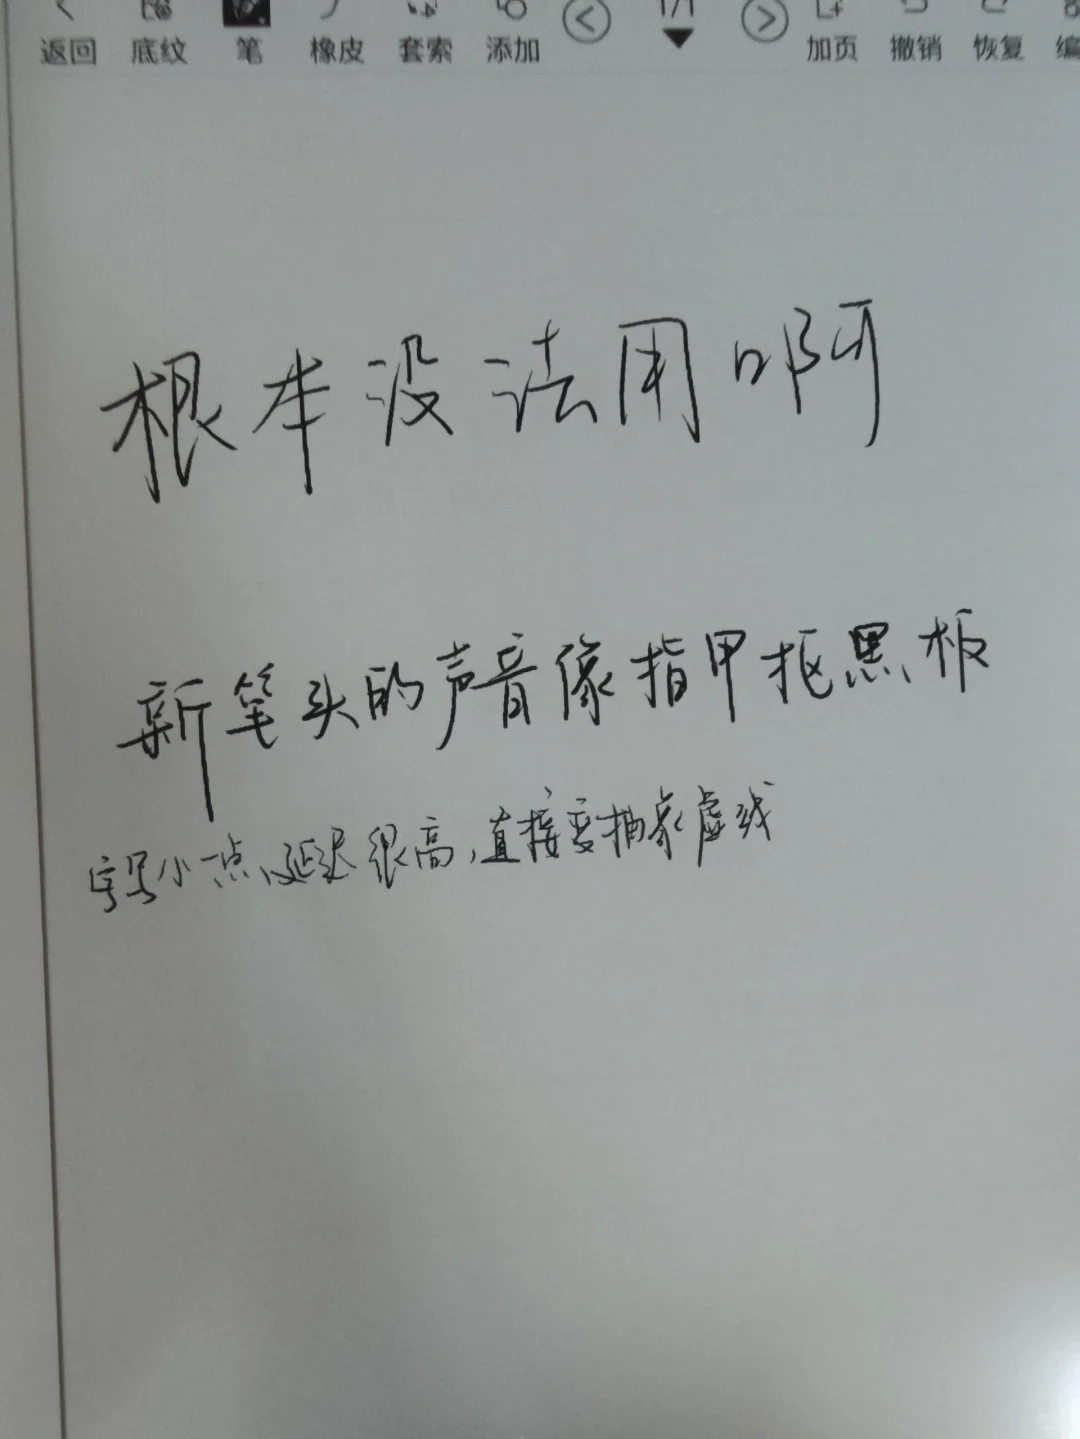 返回 底纹 笔 橡皮 套索 添加 1/1 加页 撤销 恢复 编
根本没法用啊
新笔头的声音像指甲抠黑板
字写小一点、延迟很高,直接变抽象虚线